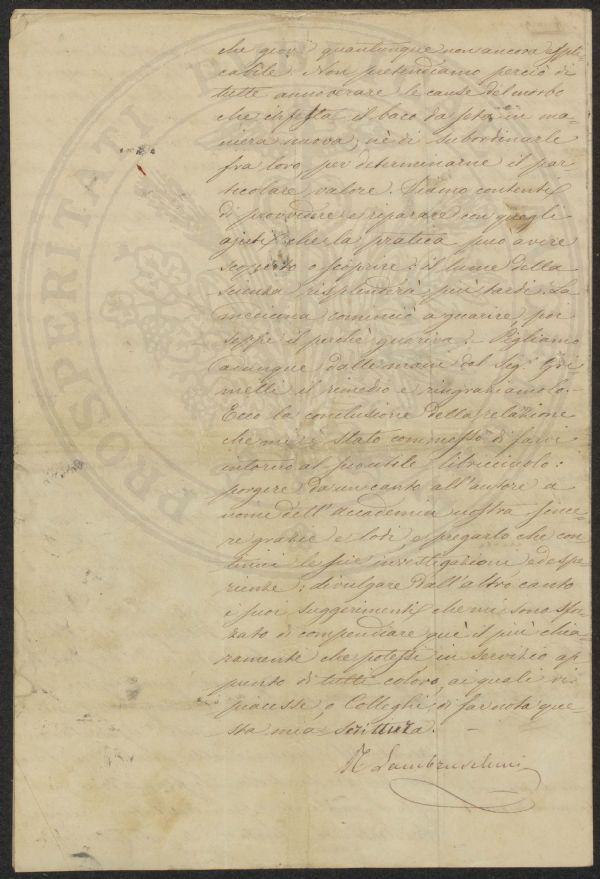 che giovi quantunque non ancora espli-
cabile. Non pretendiamo perciò di
tutte annoverare le cause del morbo
che infesta il baco da seta in ma-
niera nuova, nè di subordinarle
fra loro per determinarne il par-
ticolare valore. Siamo contenti
di provvedere e riparare con quegli
ajuti che la pratica può avere
scoperto o scoprire: il lume della
scienza risplenderà più tardi. La
medicina cominciò a guarire, poi
seppe il perchè guariva. Pigliamo
adunque dalle mani del Sig.r Gri-
melli il rimedio e ringraziamolo.
Ecco la conclusione della relazione
che mi è stato commesso di farvi
intorno al libricciuolo:
porgere da un canto all'autore a
nome dell'Accademia nostra since-
re grazie e lodi, e pregarlo che con-
tinui le sue investigazioni ed espe-
rienze: divulgare dall'altro canto
i suoi suggerimenti che mi sono sfor-
zato di compendiare quì il più chia-
ramente che potessi in servizio ap-
punto di tutti coloro, ai quali vi
piacesse, o Colleghi, di far nota que-
sta mia scrittura.
R Lambruschini
PROSPERITATI